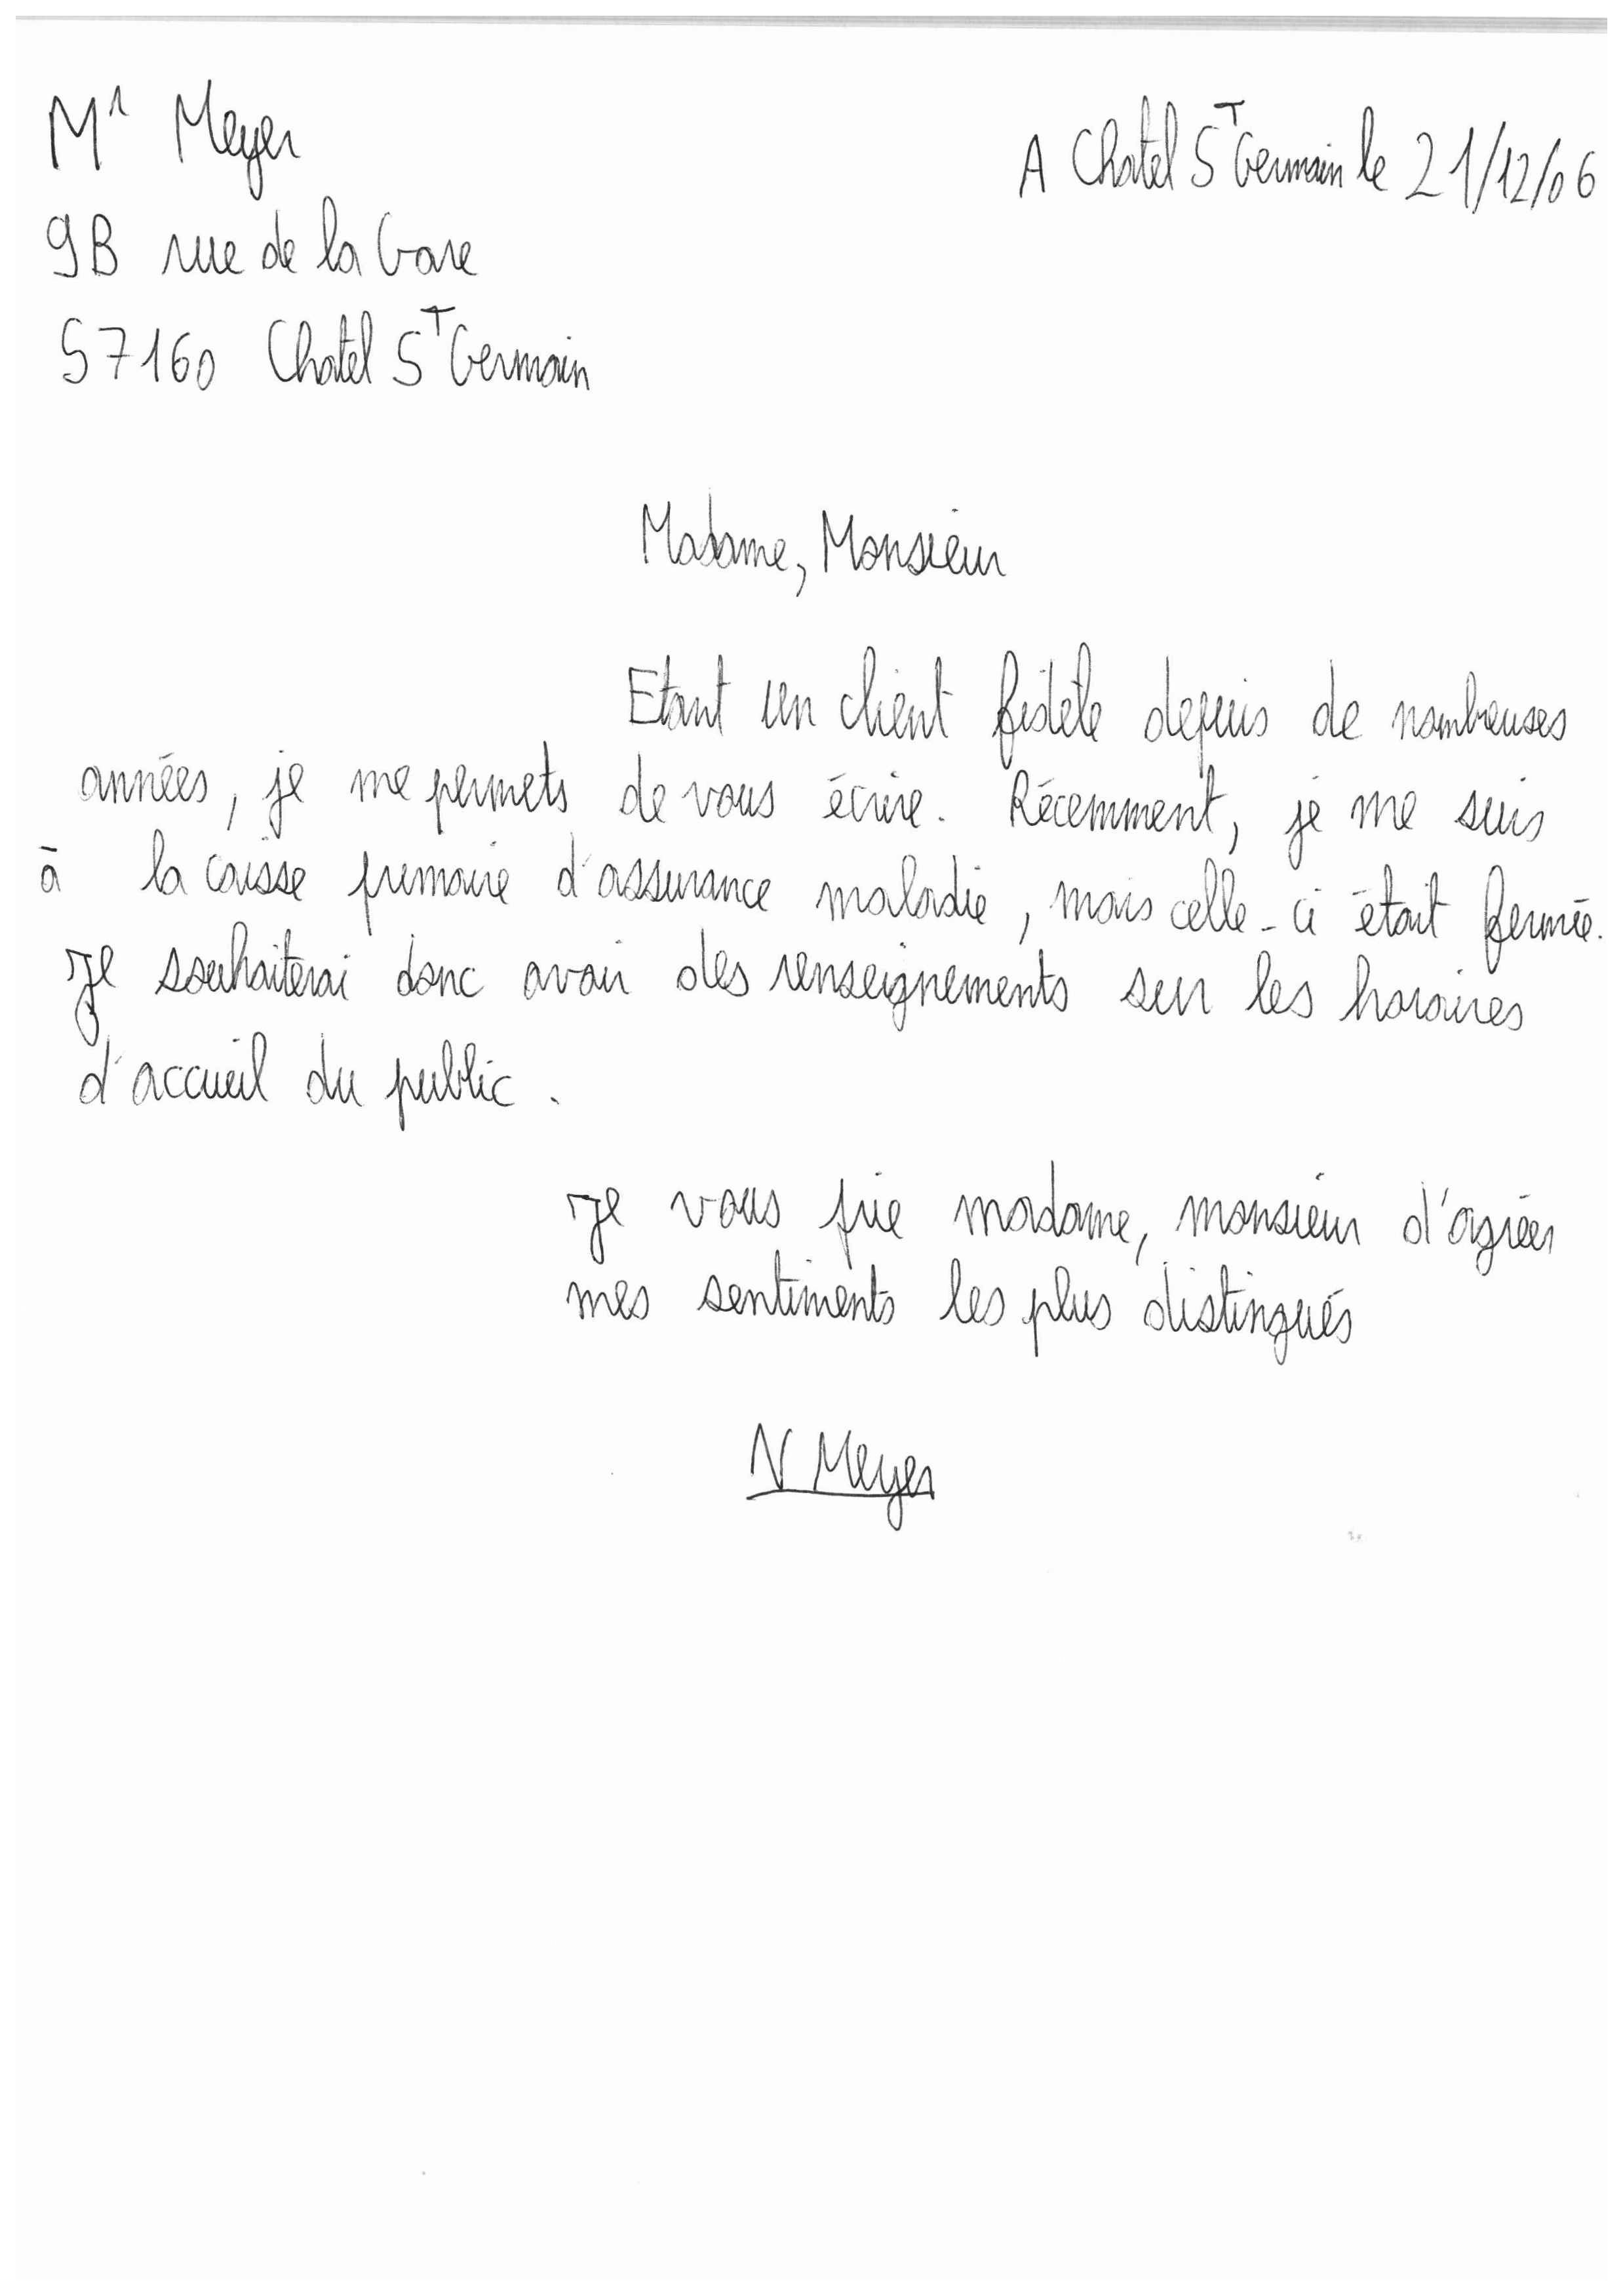 Mr Meyer
A Chatel ST Germain le 21/12/06
9B rue de la Gare
57160 Chatel ST Germain
Madame, Monsieur
Etant un client fidèle depuis de nombreuses
années, je me permets de vous écrire. Récemment, je me suis
à la caisse primaire d'assurance maladie, mais celle-ci était fermée.
Je souhaiterai donc avoir des renseignements sur les horaires
d'accueil du public.
Je vous prie madame, monsieur d'agréer
mes sentiments les plus distingués
N Meyer